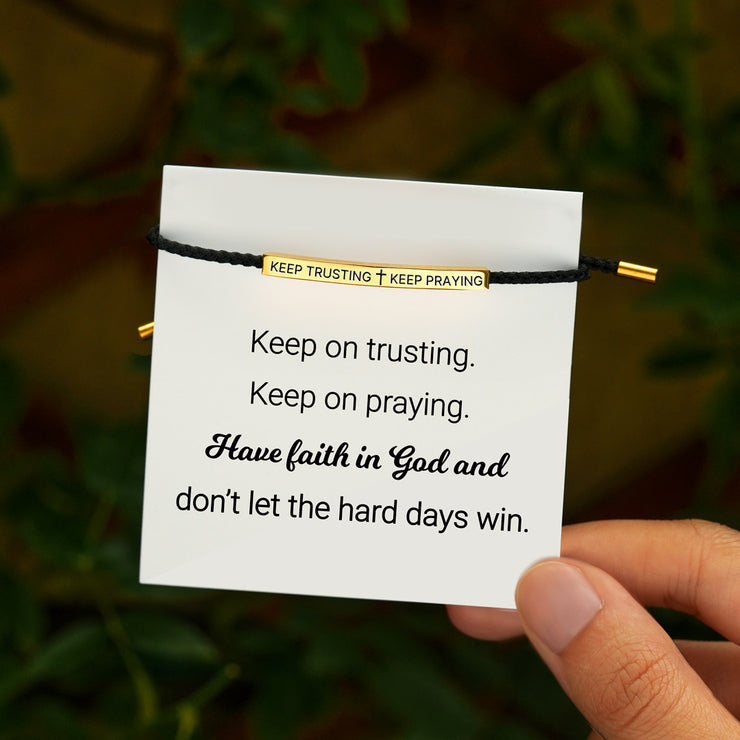 KEEP TRUSTING ✝ KEEP PRAYING
Keep on trusting.
Keep on praying.
Have faith in God and
don't let the hard days win.